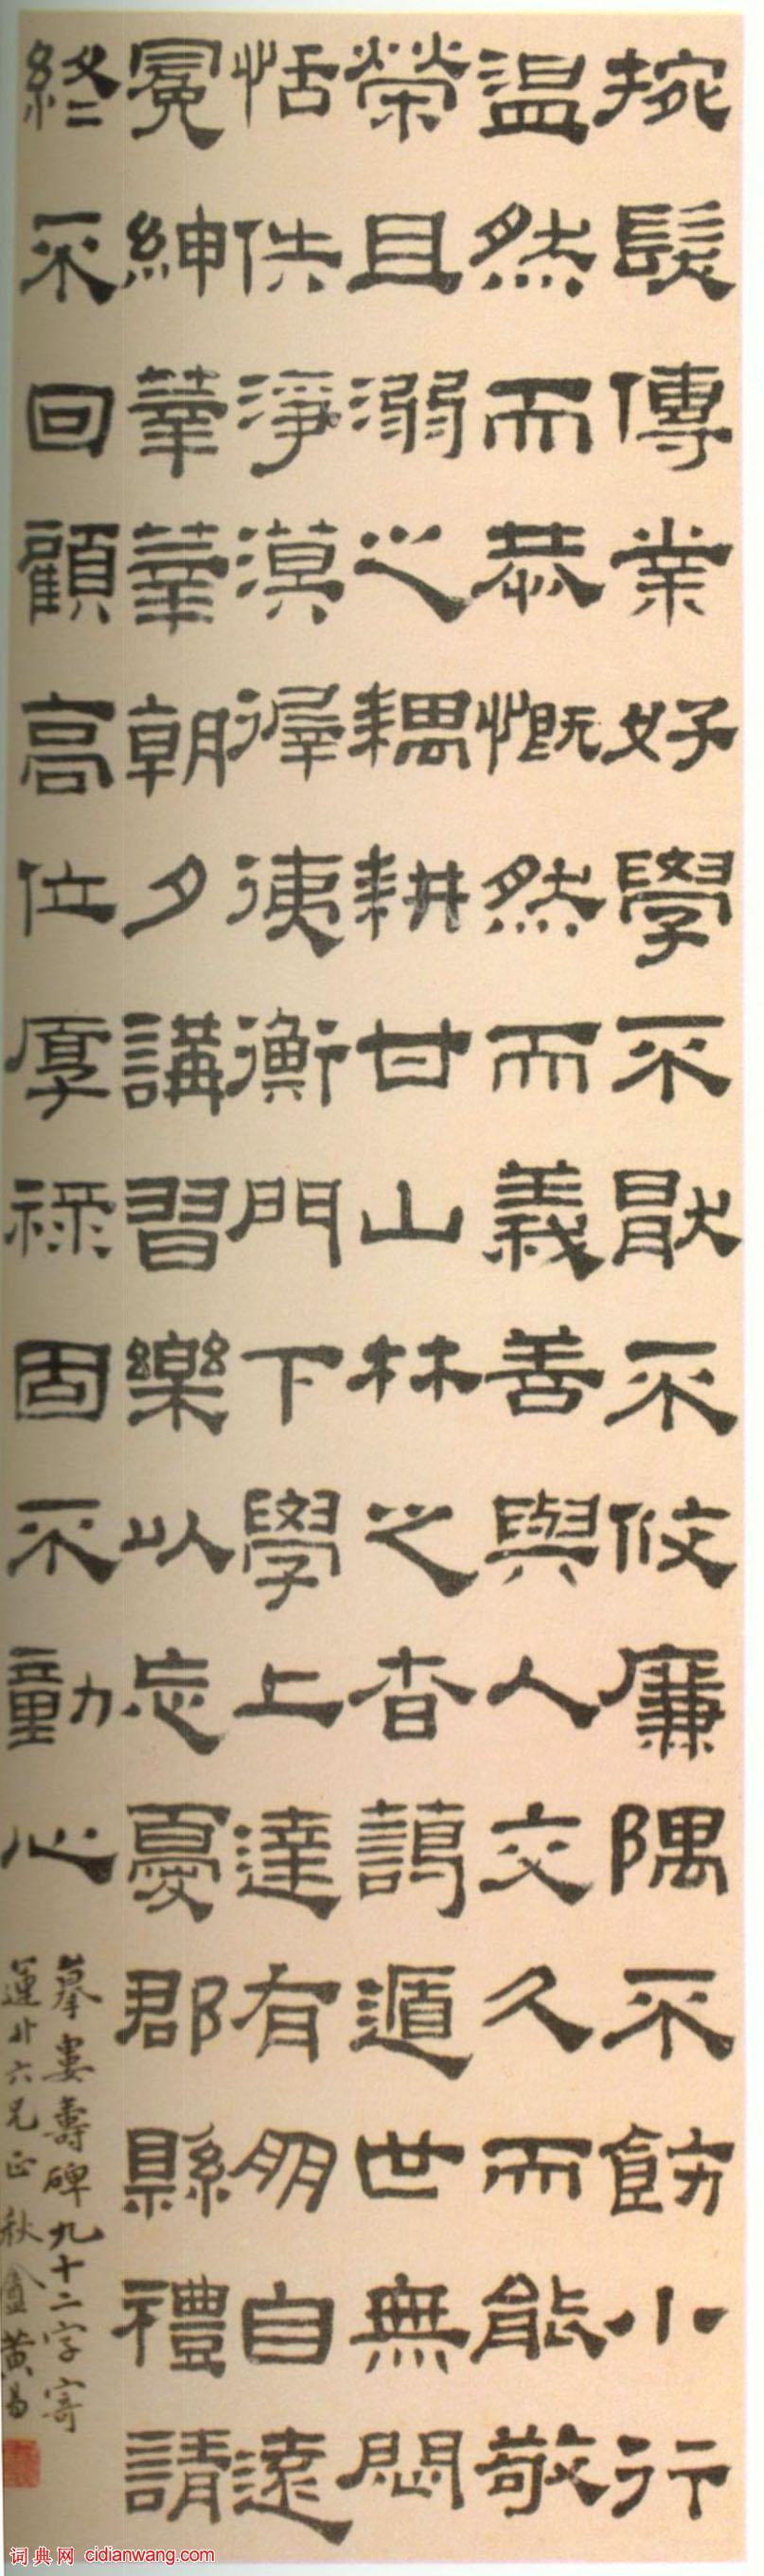 捥髮傳業好學不猒不攸廉隅不飭小行
温然而恭慨然而義善與人交久而能敬
榮且溺之耦耕甘山林之杳藹遁世無悶
恬佚淨漠徲徚衡門下學上達有朋自遠
冕紳莘莘朝夕講習樂以忘憂郡縣禮請
終不回顧高位厚祿固不動心
摹婁壽碑九十二字寄
蓮州六兄正 秋盦黃易
词典网 cidianwang.com